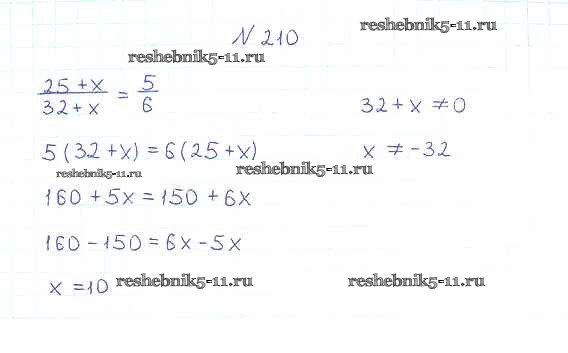 resh​ebnik5-11.ru
N 210
reshebnik5-11.ru
25 + x / 32 + x = 5 / 6
32 + x ≠ 0
5 (32 + x) = 6 (25 + x)
x ≠ -32
reshebnik5-11.ru
reshebnik5-11.ru
160 + 5x = 150 + 6x
160 - 150 = 6x - 5x
x = 10
reshebnik5-11.ru
reshebnik5-11.ru